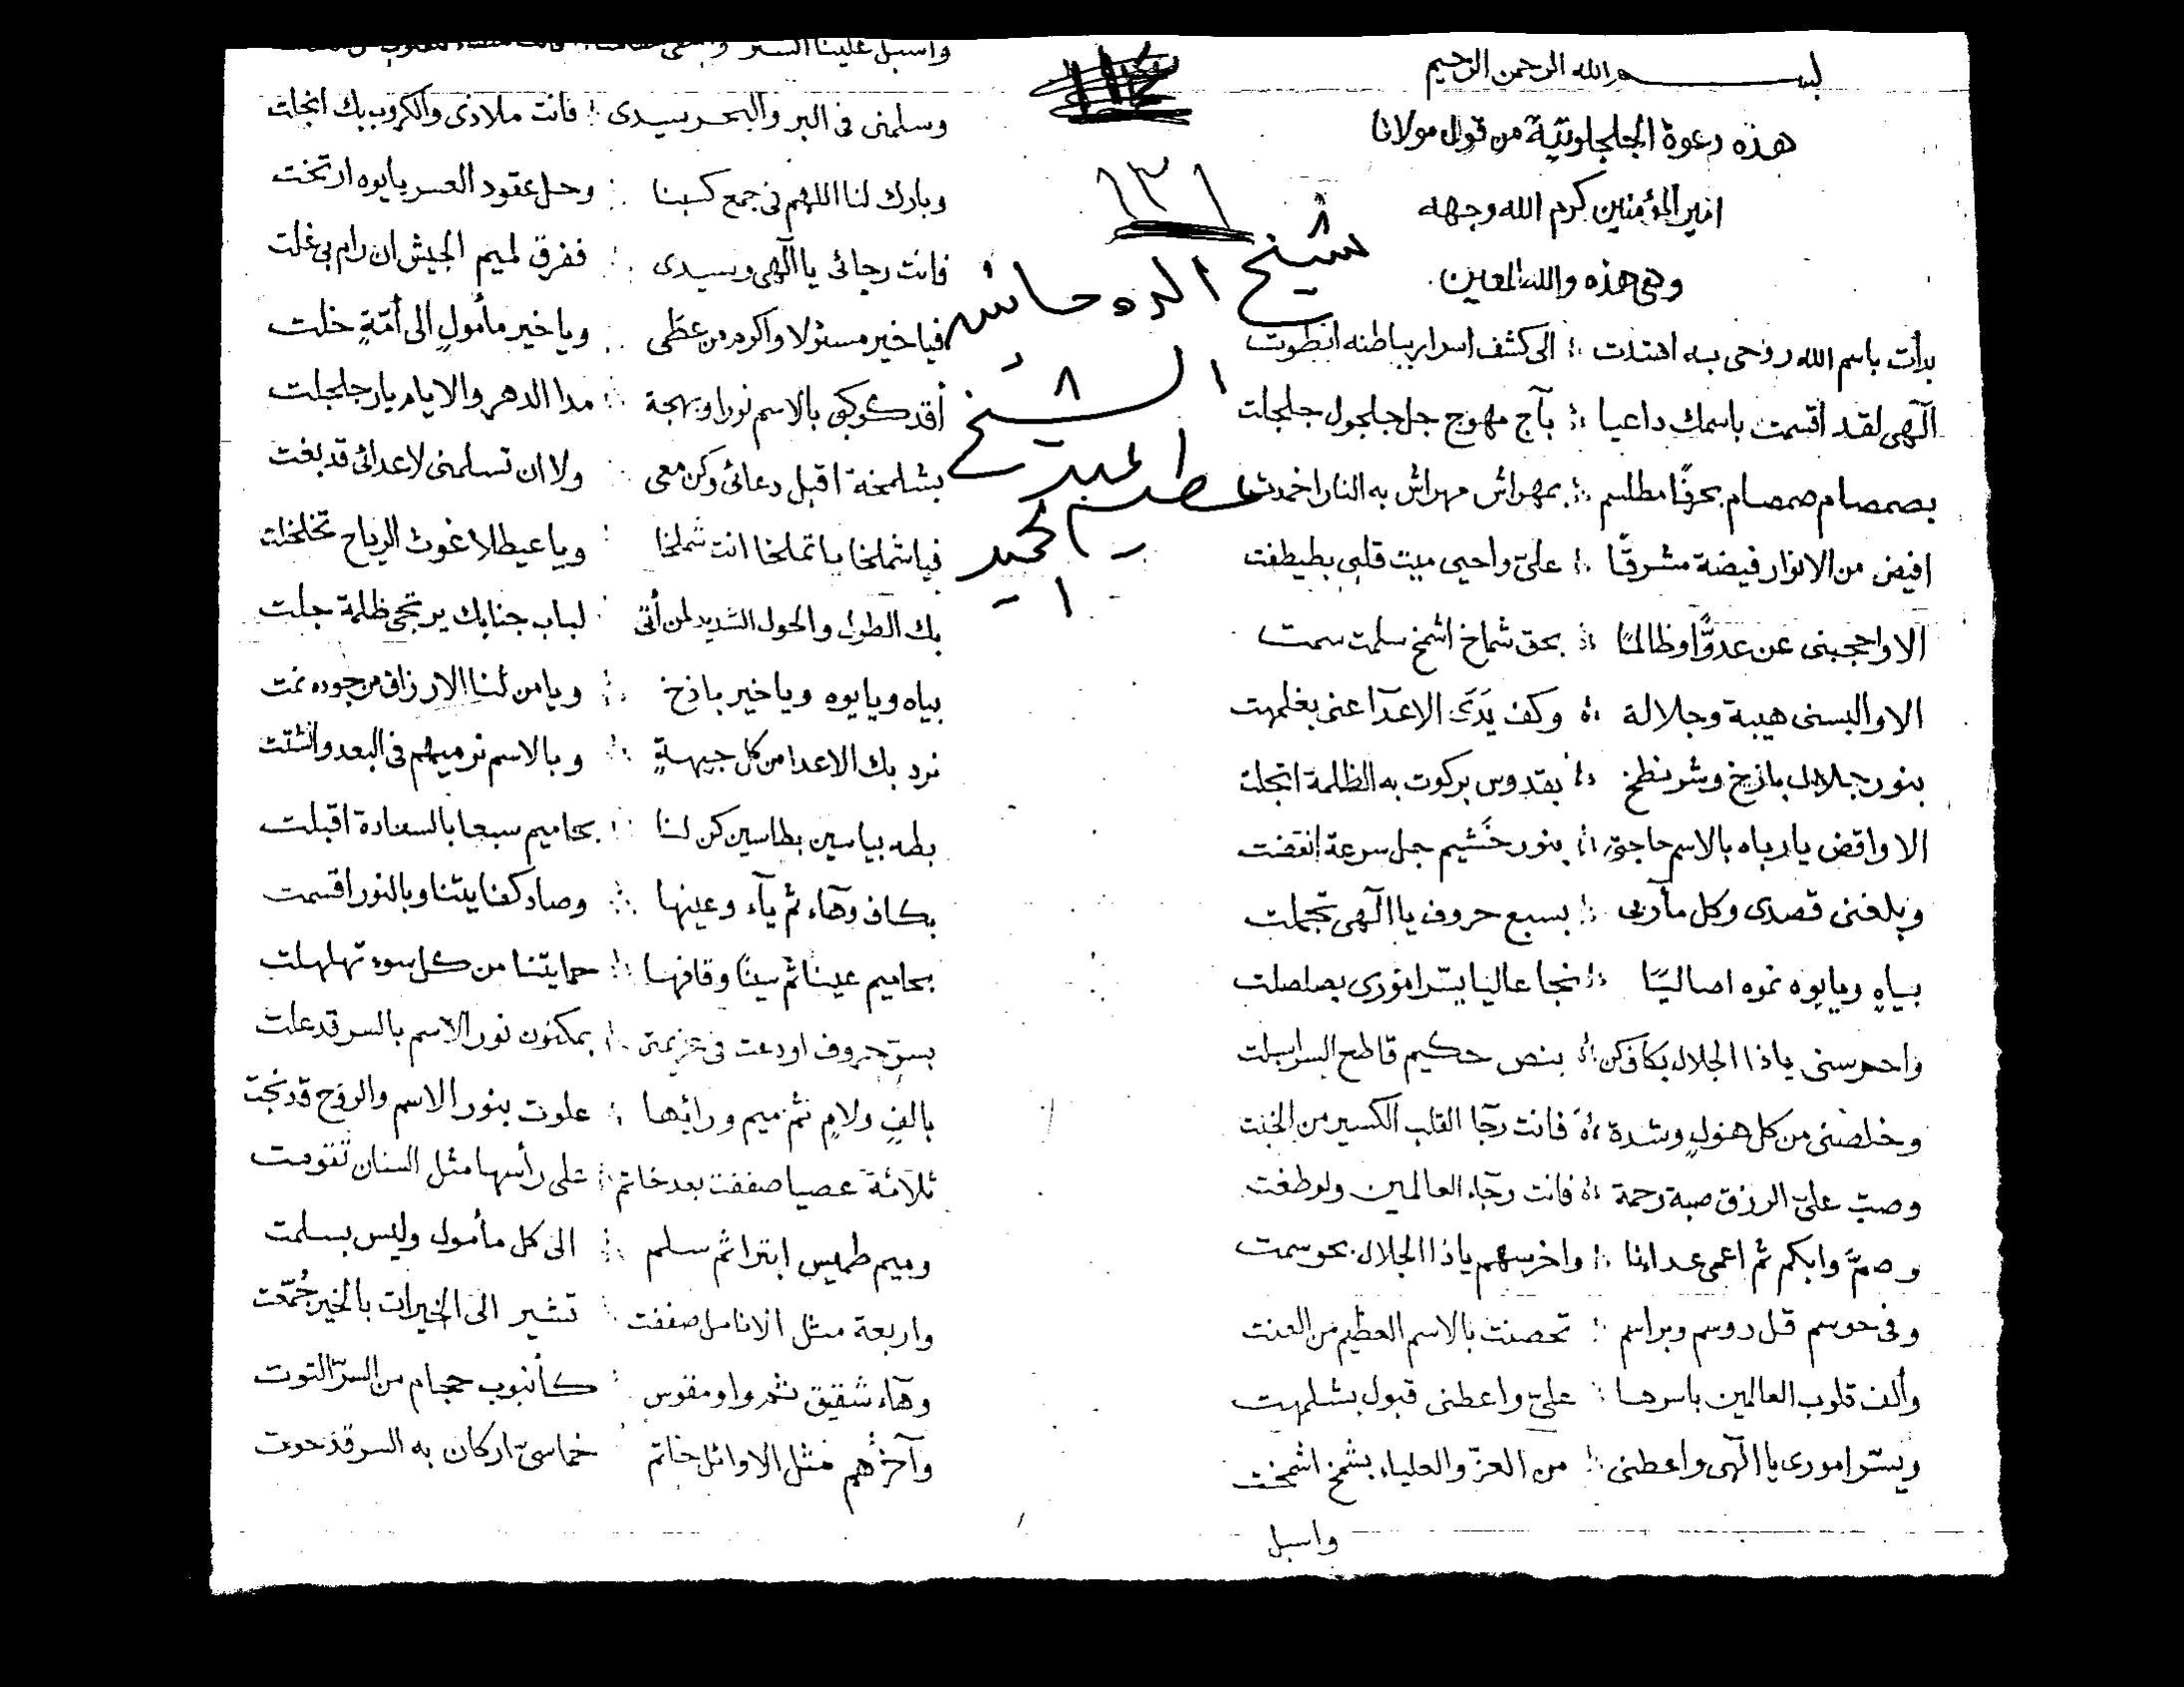 بسم الله الرحمن الرحيم
هذه دعوة الجلجلوتية من قول مولانا
امير المؤمنين كرم الله وجهه
وهى هذه والله المعين
بدأت باسم الله روحى به اهتدت الى كشف اسرار بباطنه انطوت
آلهى لقد اقسمت باسمك داعيا بآج مهوج جل جلجول جلجلت
بصمصام صمصام بحرفًا مطلسم بمهراش مهراش به النار اخمدت
افيض من الانوار فيضة مشرقًا علىّ واحيى ميت قلبى بطيطفت
الا واحجبنى عن عدوًّا وظالمًا بحق شماخ اشمخ سلمت سمت
الا والبسنى هيبة وجلالة وكف يَدَىَ الاعدآ عنى بغلمهت
بنور جلال بازخ وشرنطخ بقدوس بركوت به الظلمة انجلت
الا واقض يا رباه بالاسم حاجتى بنور خَشيم جل سرعة انقضت
وبلغنى قصدى وكل مآربى بسبع حروف يا آلهى تجملت
بياهٍ ويايوه نموه اصاليًا نجا عاليا يسّر امورى بصلصلت
واحرسنى ياذا الجلال بكاف كن بنص حكيم قاطع السر اسبلت
وخلصنى من كل هولٍ وشدة فانت رجآ القلب الكسير من الخبت
وصبّ علىّ الرزق صبة رحمة فانت رجآء العالمين ولو طغت
وصمَّ وابكم ثم اعمى عداينا واخرسهم ياذا الجلال بحوسمت
وفى حوسم قل دوسم وبراسم تحصنت بالاسم العظيم من العنت
وألف قلوب العالمين باسرها علىّ واعطنى قبول بشلمهت
ويسّر امورى يا آلهى واعطنى من العزّ والعلياء بشمخ اشمخت
واسبل
١٣١
شيخ الروحانى
الشيخ
عبد
العظيم
المجيد
واسبل علينا الستر
وسلمنى فى البر والبحر سيدى فانت ملاذى والكروب بك انجلت
وبارك لنا اللهم فى جمع كسبنا وحل عقود العسر يايوه ارتخت
فانت رجائى يا آلهى وسيدى ففرق لميم الجيش ان رام بى غلت
فيا خير مسئولا واكرم من عطى ويا خير مأمولٍ الى أمّةٍ خلت
أقد كوكبى بالاسم نورا وبهجة مدا الدهر والايام يار جلجلت
بشلمخة اقبل دعائى وكن معى ولا ان تسلمنى لاعدائى قد بغت
فياشملخا ياتملخا انت شملخا ويا عيطلا غوث الرياح تخلخلت
بك الطول والحول الشديد لمن أتى لباب جنابك يرتجى ظلمة جلت
بياه ويايوه ويا خير باذخ ويا من لنا الارزاق من جوده نمت
نرد بك الاعدا من كل جيهةٍ وبالاسم نرميهم فى البعد وانشتت
بطه بياسين بطاسين كن لنا بحاميم سبعا بالسعادة اقبلت
بكاف وهآء ثم يآء وعينها وصاد كفايتنا وبالنور اقسمت
بحاميم عينا ثم سينًا وقافها حمايتنا من كل سوء تهلهلت
بسرّ حروف اودعت فى عزيمتى بمكنون نور الاسم بالسر قد علت
بالفٍ ولامٍ ثم ميم ورائها علوت بنور الاسم والروح قد نجت
ثلاثة عصيا صففت بعد خاتم على رأسها مثل السنان تقومت
وميم طميس ابترا ثم سلم الى كل مأمول وليس بسلمت
واربعة مثل الانامل صففت تشير الى الخيرات بالخير جُمّعت
وهآء شقيق ثم واو مقوس كأنبوب حجام من السرّ التوت
وآخرُهم مثل الاوائل خاتم خماسىّ اركان به السر قد حوت